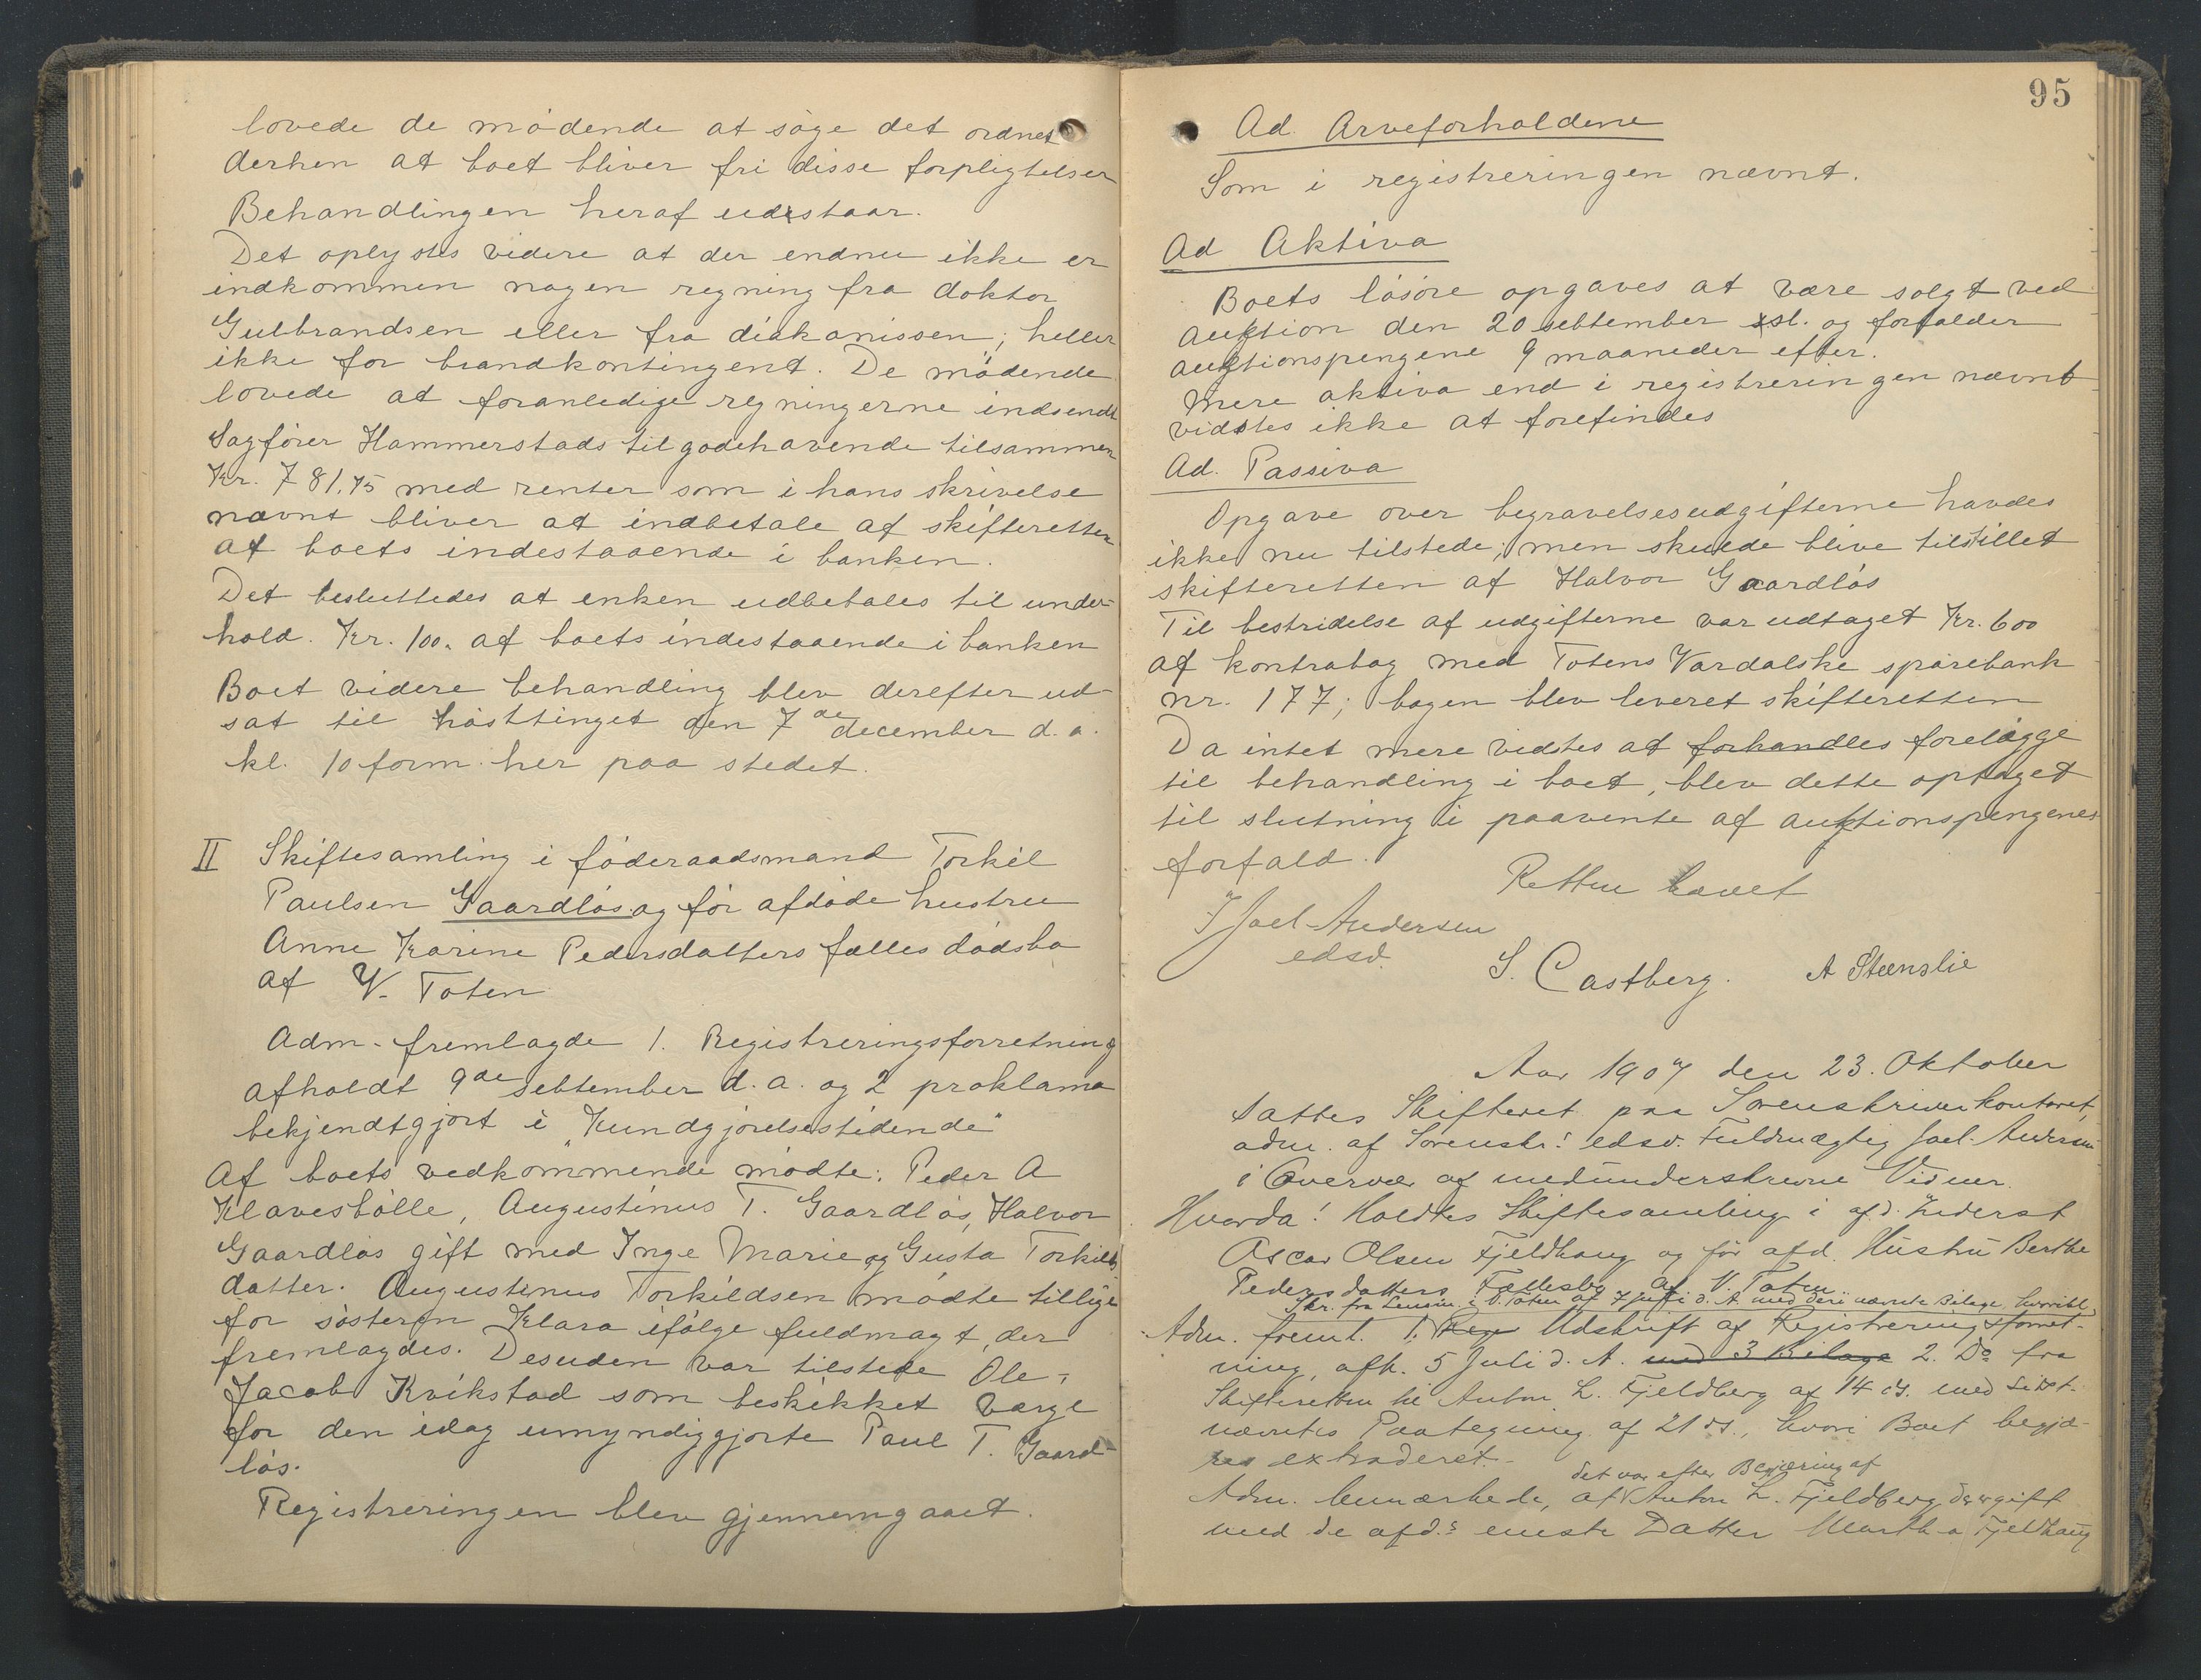 lovede de mødende at søge det ordnet
derhen at boet bliver fri disse forpligtelser
Behandlingen heraf udestaar.
Det oplystes videre at der endnu ikke er
indkommen nogen regning fra doktor
Gulbrandsen eller fra diakonissen; heller
ikke for brandkontingent. De mødende
lovede at foranledige regningerne indsendt
Sagfører Hammerstads tilgodehavende tilsammen
Kr. 781.75 med renter som i hans skrivelse
nævnt bliver at indbetale af skifteretten
af boets indestaaende i banken.
Det besluttedes at enken udbetales til under-
hold. Kr. 100. af boets indestaaende i banken
Boet videre behandling blev derefter ud-
sat til høsttinget den 7de december d.a.
kl. 10 form. her paa stedet.
II Skiftesamling i føderaadsmand Torkil
Paulsen Gaardløs og før afdøde hustru
Anne Karine Pedersdatters fælles dødsbo
af V. Toten
Adm. fremlagde 1. Registreringsforretning
afholdt 9de september d.a. og 2 proklama
bekjendtgjort i "Kundgjørelsestidende"
Af boets vedkommende mødte: Peder A
Klavesbølle, Augustinus T. Gaardløs, Halvor
Gaardløs gift med Inge Marie og Gusta Torkils
datter. Augustinus Torkildsen mødte tillige
for søsteren Klara ifølge fuldmagt, der
fremlagdes. Desuden var tilstede Ole
Jacob Kvikstad som beskikket værge
for den idag umyndiggjorte Paul T. Gaard-
løs.
Registreringen blev gjennemgaaet.
95
Ad. Arveforholdene
Som i registreringen nævnt.
Ad Aktiva
Boets løsøre opgaves at være solgt ved
auktion den 20 september sl. og forfalder
auktionspengene 9 maaneder efter.
Mere aktiva end i registreringen nævnt
vidstes ikke at forefindes
Ad. Passiva
Opgave over begravelsesudgifterne havdes
ikke nu tilstede; men skulde blive tilstillet
skifteretten af Halvor Gaardløs
Til bestridelse af udgifterne var udtaget Kr. 600
af kontrabog med Totens Vardalske sparebank
nr. 177; bogen blev leveret skifteretten
Da intet mere vidstes at forhandles forelægge
til behandling i boet, blev dette optaget
til slutning i paavente af auktionspengenes
forfald.
Retten hævet
Joel Andersen
edsv.
S. Castberg. A Steenslie
Aar 1907 den 23. Oktober
sattes Skifteret paa Sorenskriverkontoret,
adm. af Sorenskr.s edsv. Fuldmægtig Joel Andersen
i Overvær af medunderskrevne Vidner.
Hvorda! Holdtes Skiftesamling i afd. Inderst
Oscar Olsen Fjeldhaug og før afd. Hustru Berthe
Pedersdatters Fællesbo af V. Toten
Skr. fra Lensm. i V. Toten af 7 Juli d. A. med deri nævnte Bilage,
Adm. freml. 1. Reg Udskrift af Registreringsforret-
ning, afh. 5 Juli d. A. med 3 Bilage 2. Do fra
Skifteretten til Anton L. Fjeldberg af 14 ds. med sidst-
nævntes Paategning af 21 ds., hvori Boet begjæ-
res extraderet.
det var efter Begjæring af
Adm. bemærkede, at Anton L. Fjeldberg, der er gift
med de afd.s eneste Datter Martha Fjeldhaug